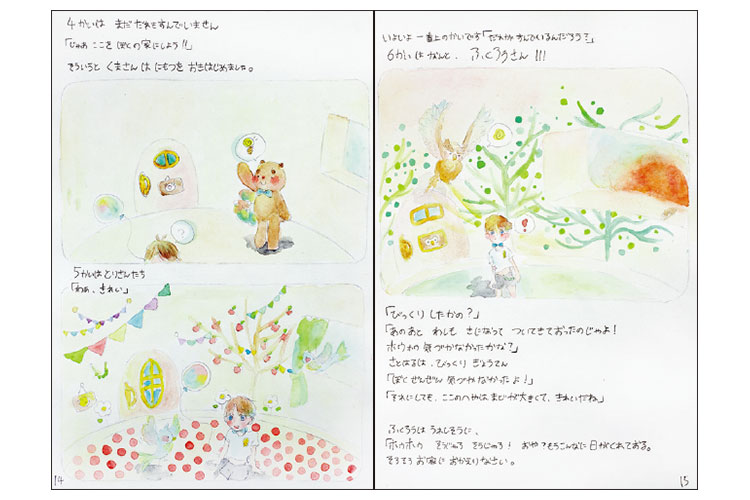 4かいは まだ だれもすんでいません
「じゃあ ここを ぼくの家にしよう!!」
そういうと くまさんは にもつを おきはじめました。
?
5かいは とりさんたち
「わぁ、きれい」
14
いよいよ 一番上のかいです「だれが すんでいるんだろう?」
6かいは なんと、ふくろうさん!!!
!
「びっくり したかの?」
「あのあと わしも きになって ついてきておったのじゃよ!
ホウホウ 気づかなかったかな?」
さとはるは、びっくり ぎょうてん
「ぼく ぜんぜん 気づかなかったよ!」
「それにしても、ここのへやは まどが大きくて、きれいだね。」
ふくろうは うれしそうに、
「ホウホウ そうじゃろ そうじゃろ! おや?もうこんなに 日がくれておる。
そろそろ お家に おかえりなさい。
15